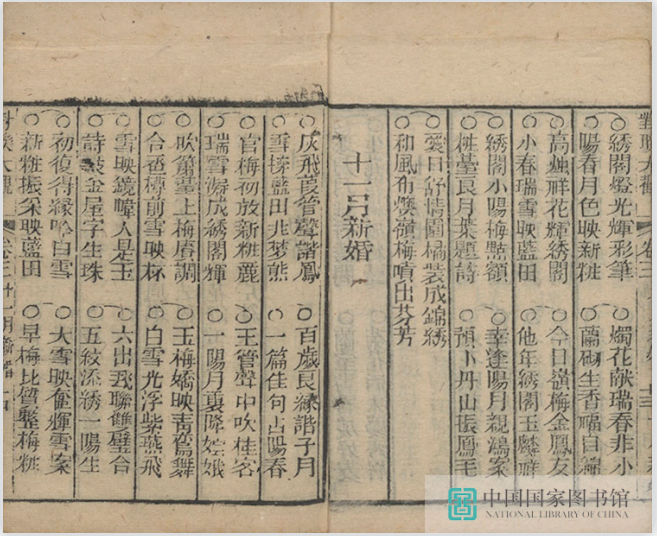 對聯大觀 卷三
綉閣燈光輝彩筆 燭花献瑞春非小
陽春月色映新粧 蘭砌生香福自綿
高燭祥花輝綉閣 今日嶺梅金鳳友
小春瑞雪映藍田 他年綉閣玉麟祥
綉閣小陽梅點額 幸逢陽月親鴻案
粧臺良月葉題詩 預卜丹山振鳳毛
愛日舒情園橘裝成錦綉
和風布燠嶺梅噴出芬芳
十一月新婚
灰飛葭管聲諧鳳 百歲良緣諧子月
雪擁藍田兆夢熊 一篇佳句占陽春
官梅初放新粧麗 玉管聲中吹桂客
瑞雪成綉閣輝 一陽月裏降嫦娥
吹簫臺上梅賡調 玉梅嬌映青鸞舞
合巹樽前雪映杯 白雪光浮紫燕飛
雪映鏡幃人是玉 六出聯雙璧合
詩裁金屋字生珠 五紋添綉一陽生
初復得緣吟白雪 大雪映奎輝雪案
新粧振采映藍田 早梅比質壓梅粧
大觀 卷三
中国国家图书馆
NATIONAL LIBRARY OF CHINA